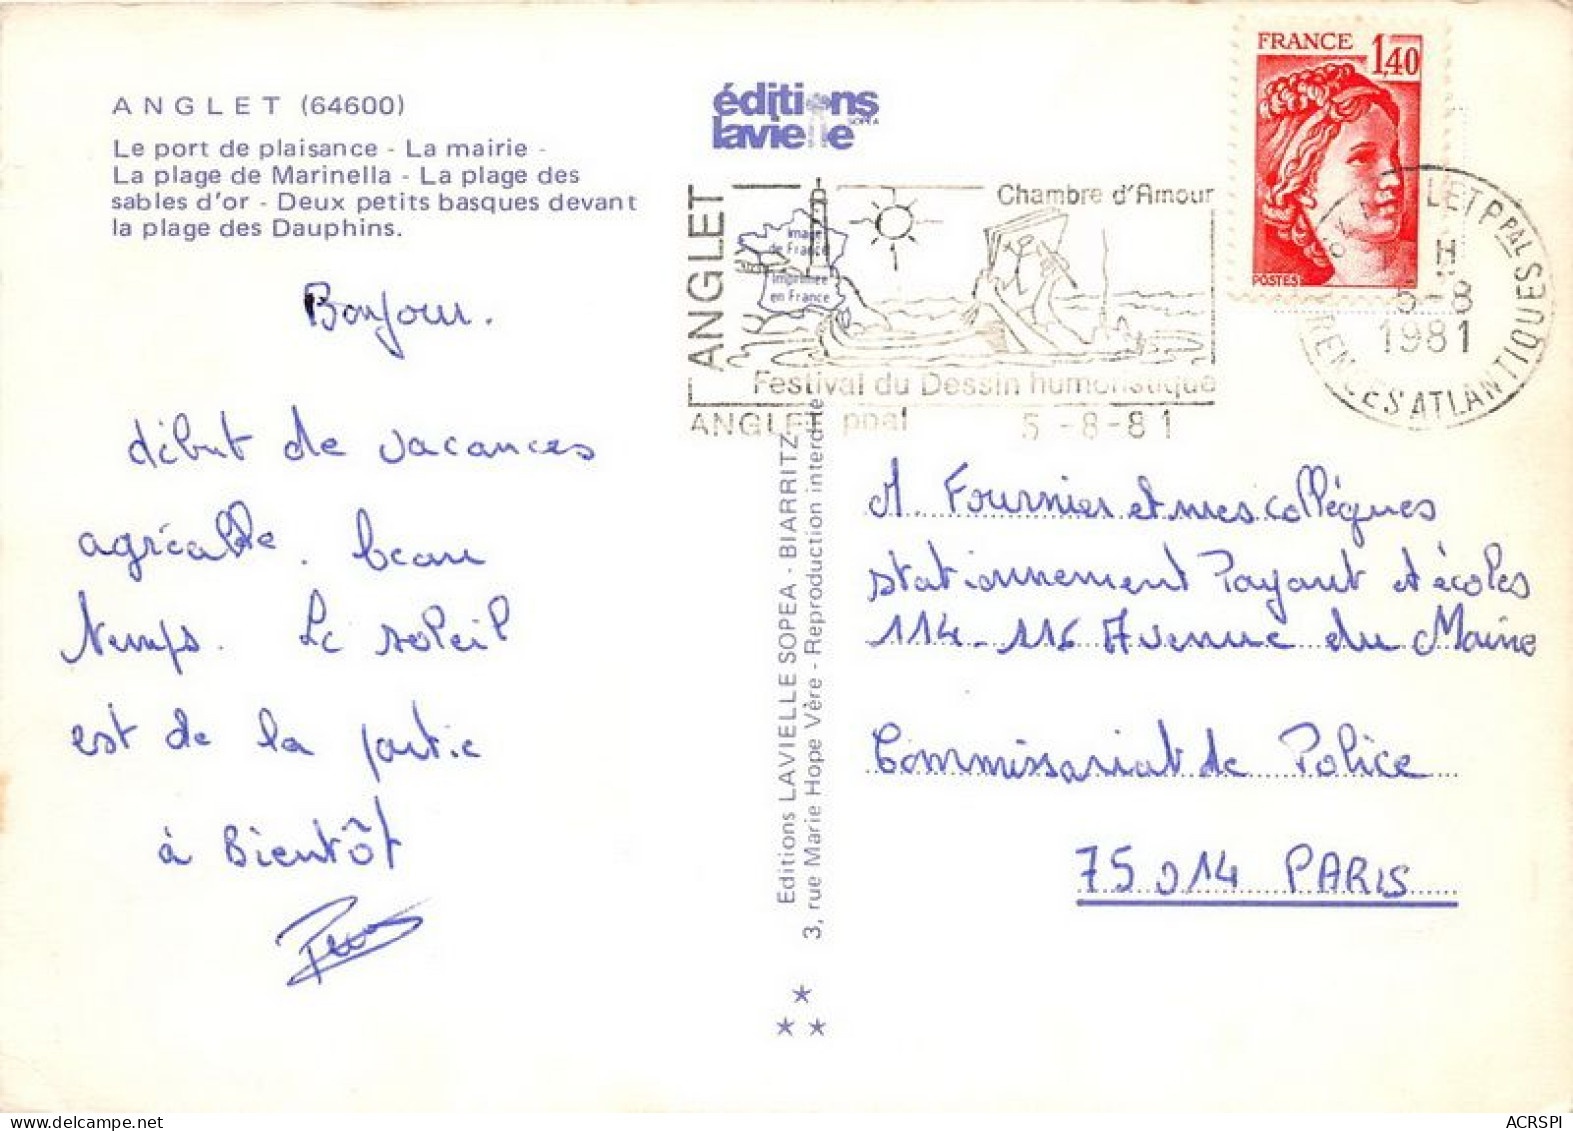 ANGLET (64600)
Le port de plaisance - La mairie -
La plage de Marinella - La plage des
sables d'or - Deux petits basques devant
la plage des Dauphins.
Bonjour.
début de vacances
agréable. beau
temps. Le soleil
est de la partie
à Bientôt
éditions
lavielle
SOPEA
FRANCE 1,40
POSTES
ANGLET
Chambre d'Amour
Image
de France
Imprimée
en France
Festival du Dessin humoristique
ANGLET ppal 5-8-81
H
5-8
1981
Editions LAVIELLE SOPEA - BIARRITZ
3, rue Marie Hope Vère - Reproduction interdite
A. Fournier et mes collègues
stationnement Payant et écoles
114-116 Avenue du Maine
Commissariat de Police
75014 PARIS
ACRSPI